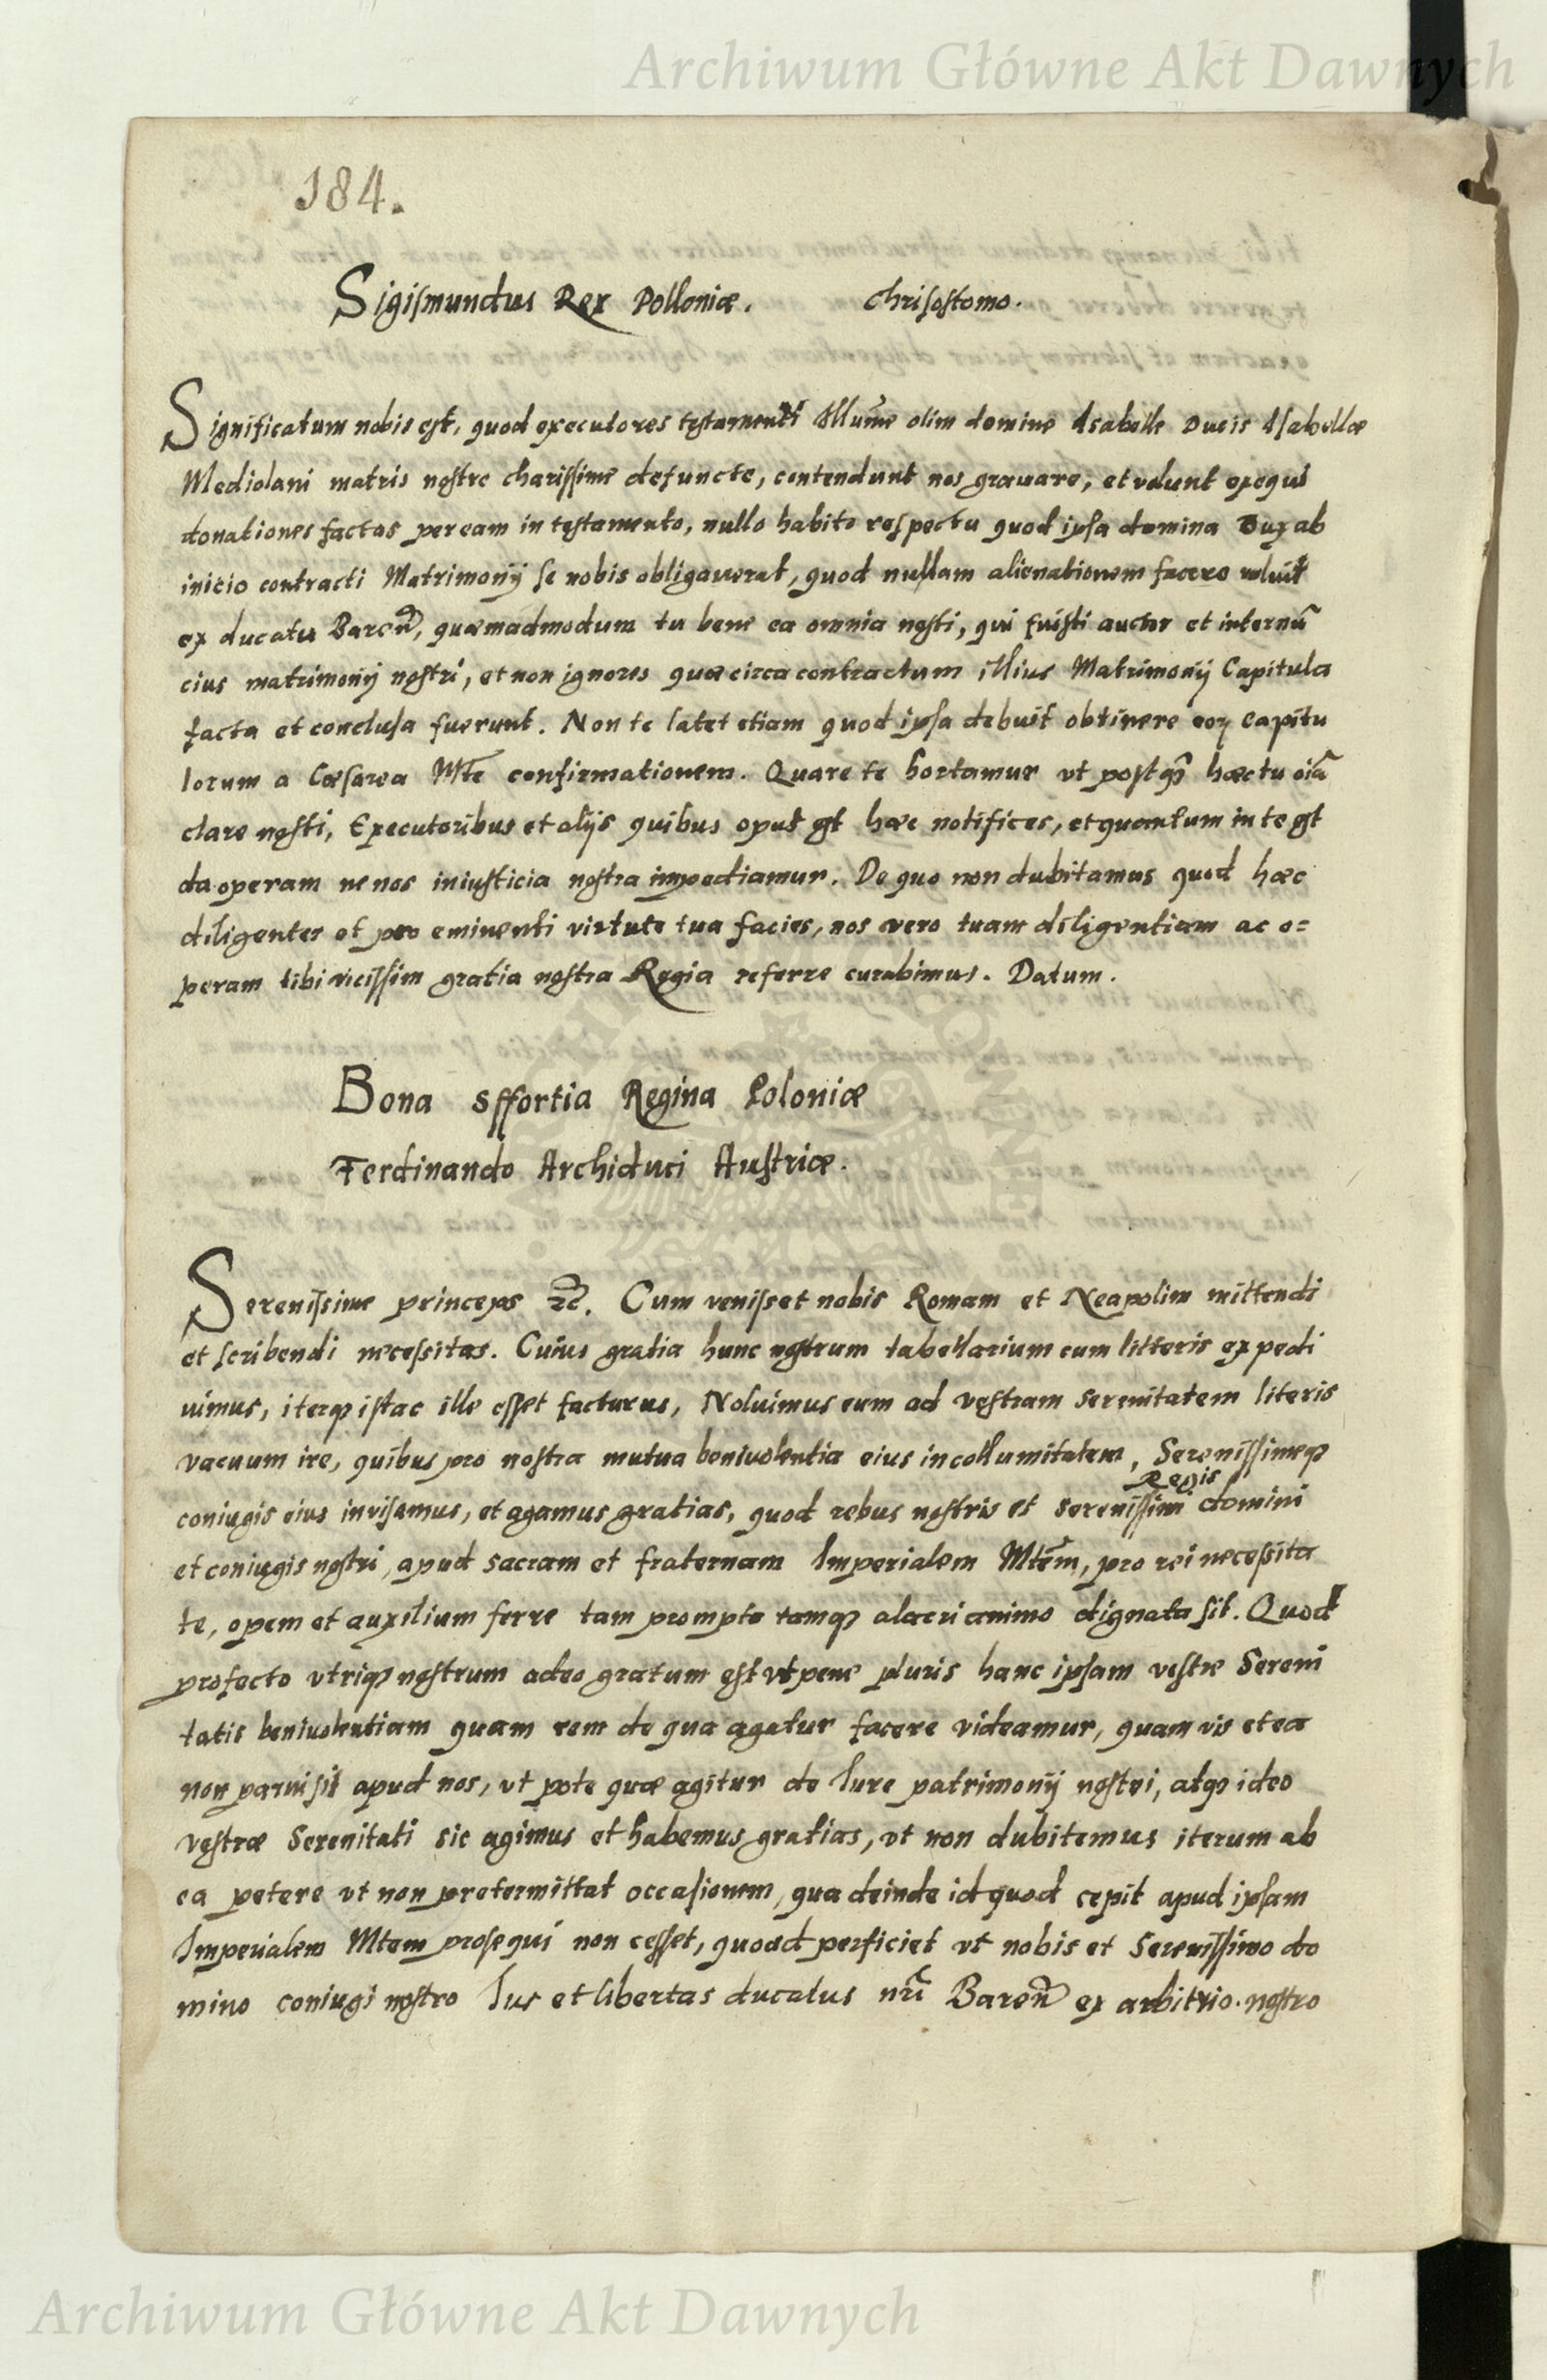 Archiwum Główne Akt Dawnych
184.
Sigismundus Rex Polloniæ. Chrisostomo.
Significatum nobis est, quod executores testamenti Illumē olim domine Isabelle Ducis Isabellæ
Mediolani matris nostre charissime defuncte, contendunt nos grauare, et volunt exequi
donationes factas per eam in testamento, nullo habito respectu quod ipsa domina Dux ab
inicio contracti Matrimonij se nobis obligauerat, quod nullam alienationem facere voluit
ex ducatu Baren̄, quæmadmodum tu bene ea omnia nosti, qui fuisti auctor et internū
cius matrimonij nostri, et non ignores quæ circa contractum illius Matrimonij Capitula
facta et conclusa fuerunt. Non te latet etiam quod ipsa debuit obtinere eoꝝ capitu
lorum a Cæsarea Mte confirmationem. Quare te hortamur vt postq̃ hæc tu oīa
clare nosti, Executoribus et alijs quibus opus est hæc notifices, et quantum in te est
da operam ne nos iniusticia nostra impediamur. De quo non dubitamus quod hæc
diligenter et pro eminenti virtute tua facies, nos vero tuam diligentiam ac o=
peram tibi vicissim gratia nostra Regia referre curabimus. Datum.
Bona Sffortia Regina Poloniæ
Ferdinando Archiduci Austriæ.
Serenissime princeps ꝛc̄. Cum venisset nobis Romam et Neapolim mittendi
et scribendi necessitas. Cuius gratia hunc nostrum tabellarium cum litteris expedi
uimus, iterꝙ istac ille esset facturus, Noluimus eum ad vestram serenitatem literis
vacuum ire, quibus pro nostra mutua beniuolentia eius incollumitatem, Serenissimeꝙ
coniugis eius inuisemus, et agamus gratias, quod rebus nostris et serenissimi Regis domini
et coniugis nostri, apud sacram et fraternam Imperialem Mtem̄, pro rei necessita
te, opem et auxilium ferre tam prompto tamꝙ alacri animo dignata sit. Quod
profecto vtriꝙ nostrum adeo gratum est vt pene pluris hanc ipsam vestræ Sereni
tatis beniuolentiam quam rem de qua agatur facere videamur, quam vis et ea
non parui sit apud nos, vt pote quæ agitur de Iure patrimonij nostri, atꝙ ideo
vestræ Serenitati sic agimus et habemus gratias, vt non dubitemus iterum ab
ea petere vt non pretermittat occasionem, qua deinde id quod cepit apud ipsam
Imperialem Mtem prosequi non cesset, quoad perficiet vt nobis et Serenissimo do
mino coniugi nostro Ius et libertas ducatus nr̄i Baren̄ ex arbitrio nostro
Archiwum Główne Akt Dawnych